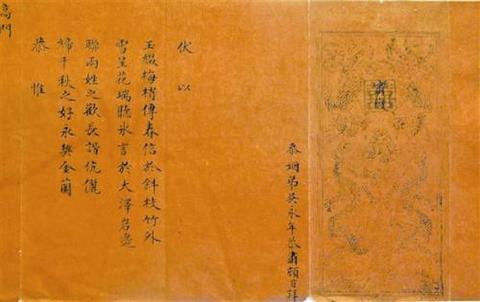 忝姻弟吳永年恭肅頓首拜
伏以
玉綴梅梢傳春信於斜枝竹外
雪呈花瑞聽氷言於大澤
聯兩姓之歡長諧伉儷
締千秋之好永契金蘭
恭惟
高門